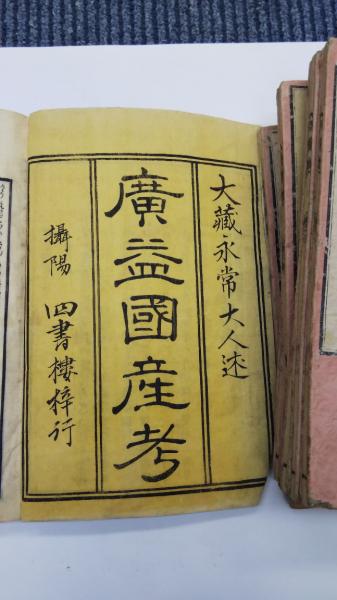 大藏永常大人述
廣益國産考
攝陽 四書樓梓行